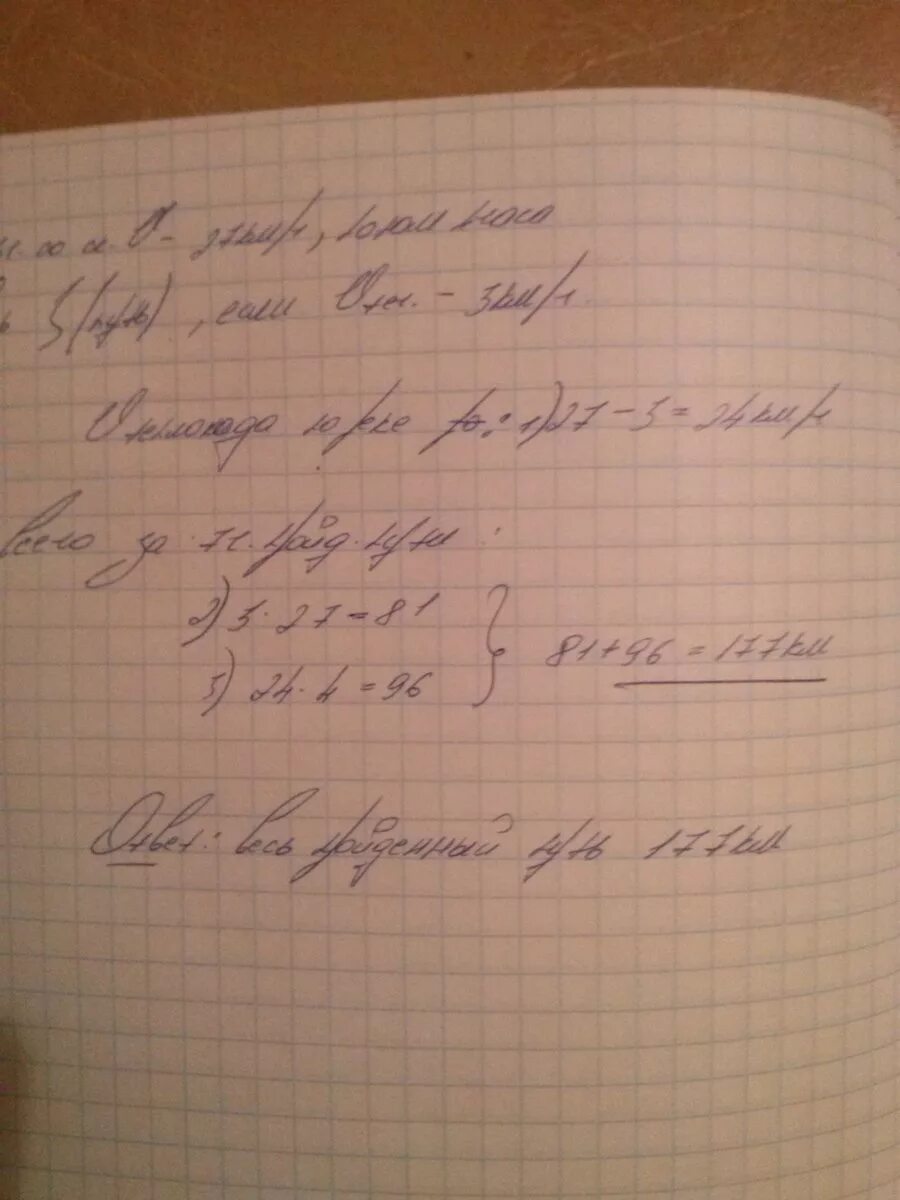 V - 27км/ч, потом
S (путь), если V теч. - 3км/ч.
V теплохода по реке 1) 27 - 3 = 24км/ч
Всего за 7ч. пройд. пути:
2) 3 · 27 = 81
3) 24 · 4 = 96
81 + 96 = 177км
Ответ: весь пройденный путь 177км